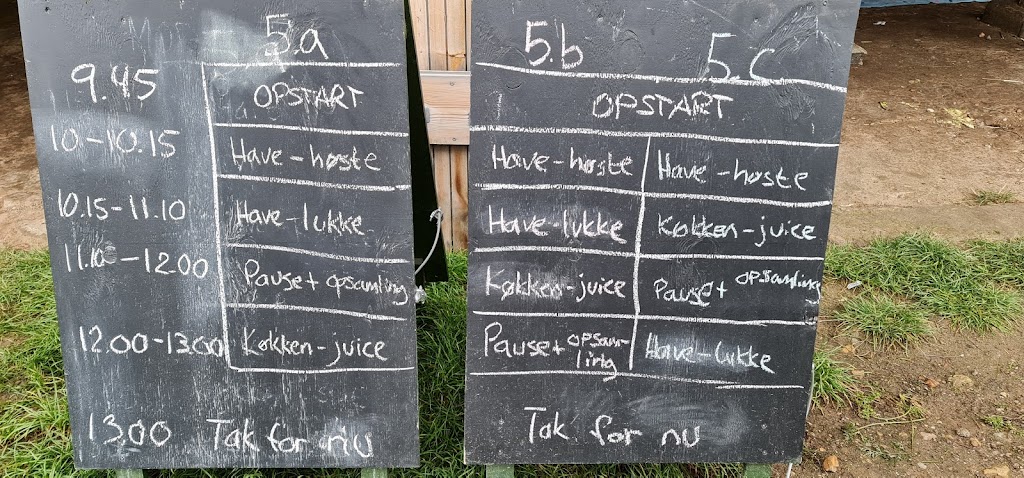 5.a
9.45 OPSTART
10-10.15 Have-høste
10.15-11.10 Have-lukke
11.10-12.00 Pause+ opsamling
12.00-13.00 Køkken-juice
13.00 Tak for nu
5.b 5.c
OPSTART
Have-høste Have-høste
Have-lukke Køkken-juice
Køkken-juice Pause+ opsamling
Pause+ opsam-
ling Have-lukke
Tak for nu